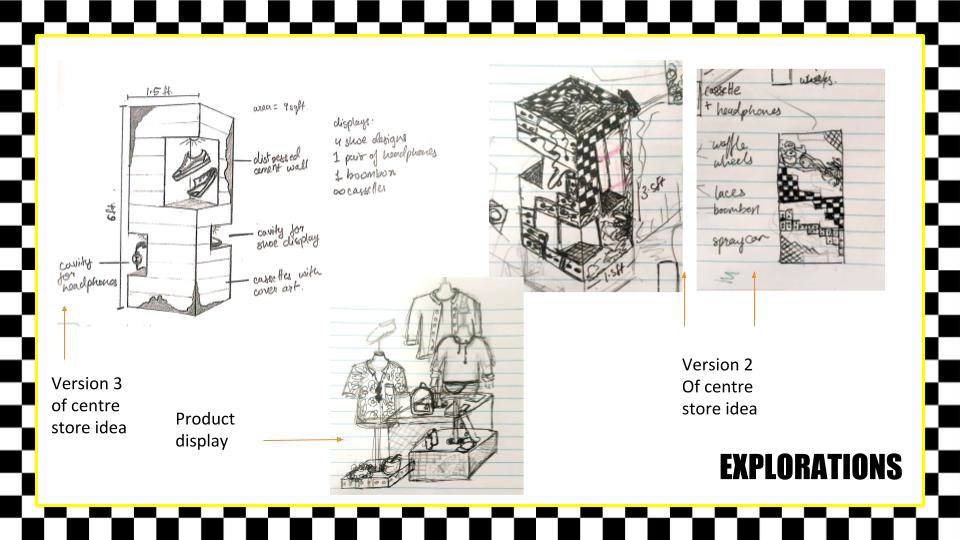 1.5 ft.
area = 9 sqft.
6 ft.
distressed
cement wall
cavity for
shoe display
cassettes with
cover art.
cavity
for
headphones
displays:
4 shoe designs
1 pair of headphones
1 boombox
∞ cassettes
3.5ft
1.5ft
wheels.
cassette
+ headphones
waffle
wheels
laces
boombox
spraycan
Version 3
of centre
store idea
Product
display
Version 2
Of centre
store idea
EXPLORATIONS